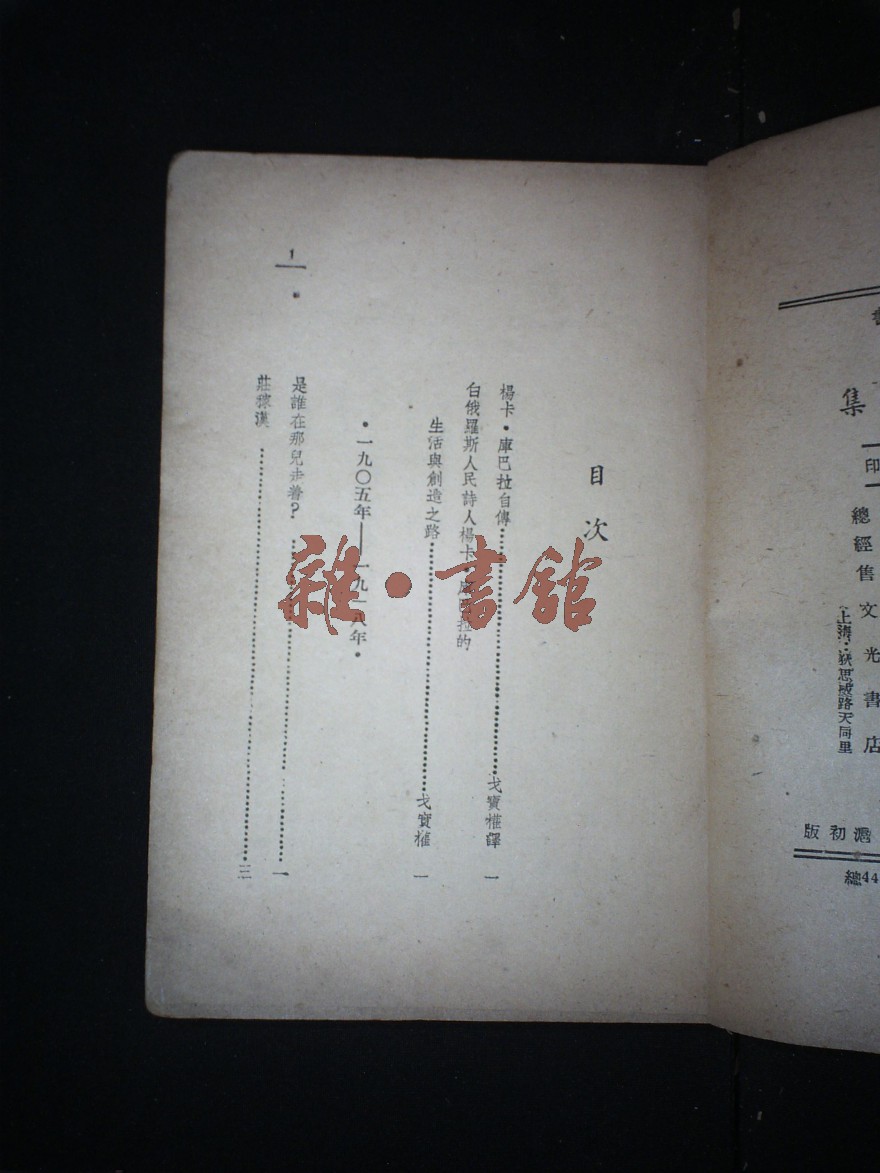 目次
楊卡·庫巴拉自傳……戈寶權譯 一
白俄羅斯人民詩人楊卡·庫巴拉的
生活與創造之路……戈寶權 一
·一九〇五年——一九一八年·
是誰在那兒走着?……一
莊稼漢……三
1
雜·書館
集
印
總經售 文光書店
(上海·狄思威路天同里
初版
總44